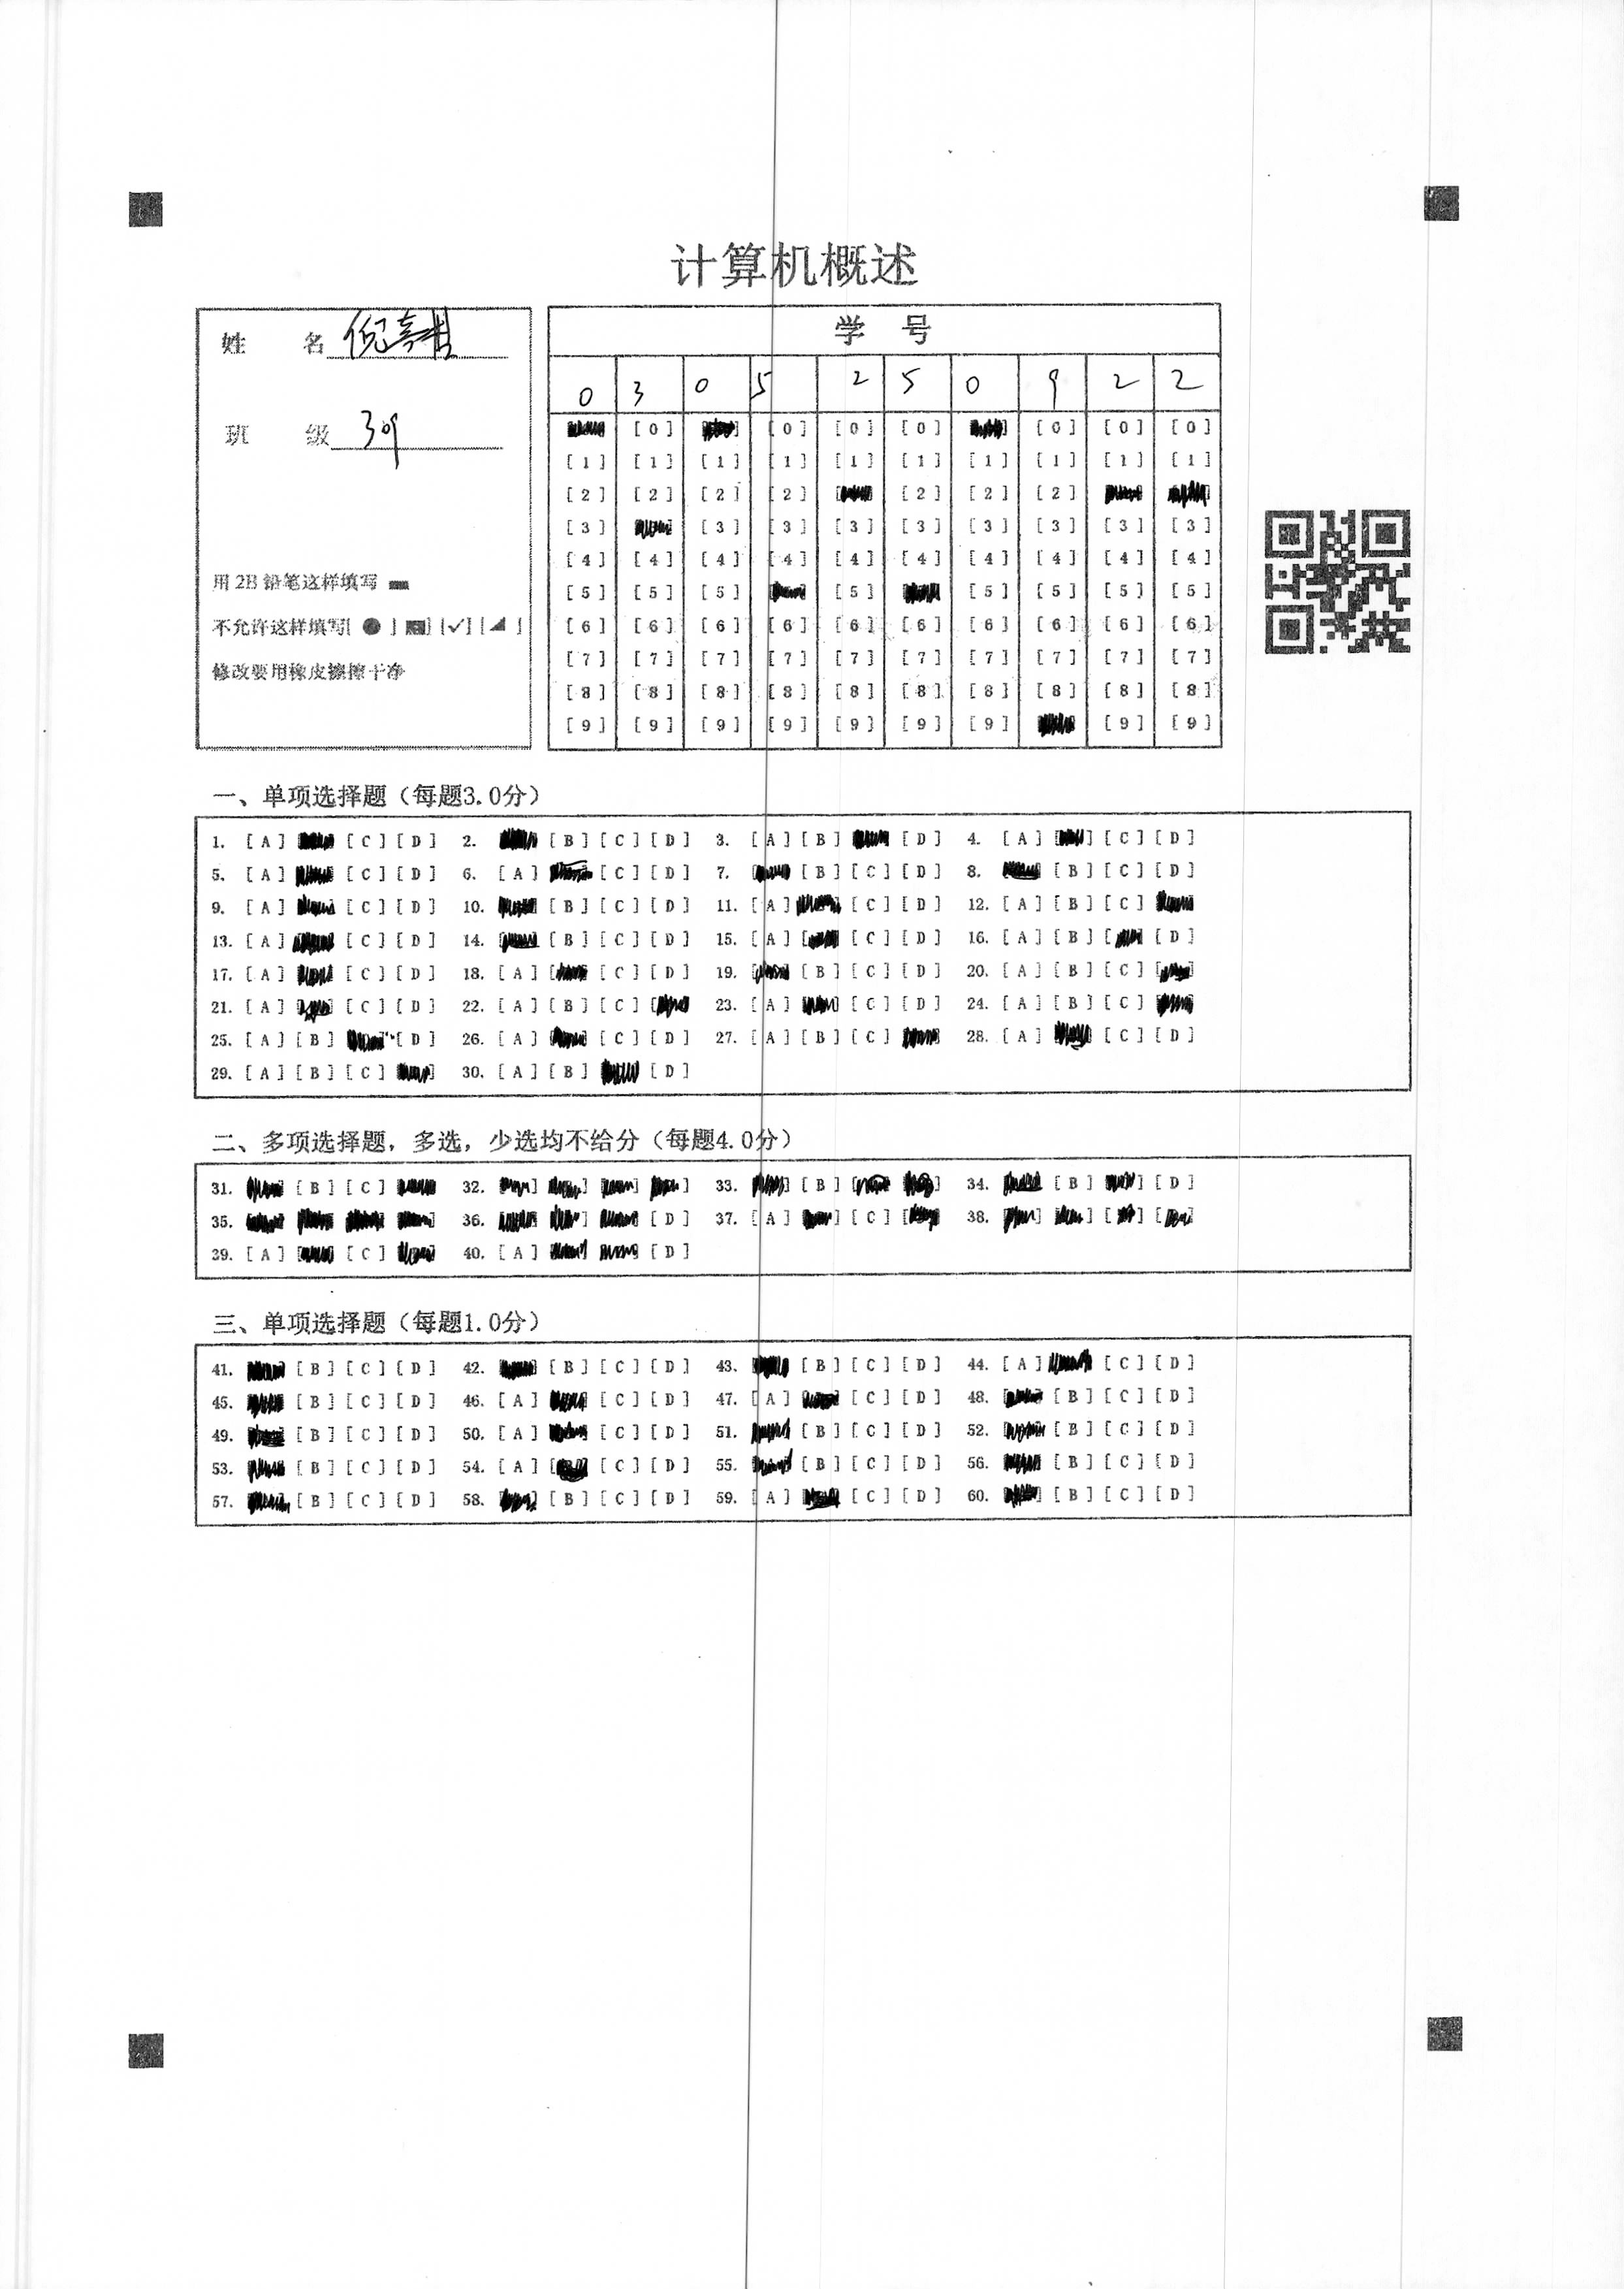 计算机概述
姓 名 倪
班 级 39
用 2B 铅笔这样填写
不允许这样填写[ ● ] [ ] [✓] [ ◢ ]
修改要用橡皮擦擦干净
学 号
0 3 0 5 2 5 0 9 2 2
[0] [0] [0] [0] [0] [0]
[1] [1] [1] [1] [1] [1] [1] [1] [1] [1]
[2] [2] [2] [2] [2] [2] [2]
[3] [3] [3] [3] [3] [3] [3] [3] [3]
[4] [4] [4] [4] [4] [4] [4] [4] [4] [4]
[5] [5] [5] [5] [5] [5] [5] [5]
[6] [6] [6] [6] [6] [6] [6] [6] [6] [6]
[7] [7] [7] [7] [7] [7] [7] [7] [7] [7]
[8] [8] [8] [8] [8] [8] [8] [8] [8] [8]
[9] [9] [9] [9] [9] [9] [9] [9] [9]
一、单项选择题（每题3.0分）
1. [A] [C] [D] 2. [B] [C] [D] 3. [A] [B] [D] 4. [A] [C] [D]
5. [A] [C] [D] 6. [A] [C] [D] 7. [B] [C] [D] 8. [B] [C] [D]
9. [A] [C] [D] 10. [B] [C] [D] 11. [A] [C] [D] 12. [A] [B] [C]
13. [A] [C] [D] 14. [B] [C] [D] 15. [A] [C] [D] 16. [A] [B] [D]
17. [A] [C] [D] 18. [A] [C] [D] 19. [B] [C] [D] 20. [A] [B] [C]
21. [A] [C] [D] 22. [A] [B] [C] 23. [A] [C] [D] 24. [A] [B] [C]
25. [A] [B] [D] 26. [A] [C] [D] 27. [A] [B] [C] 28. [A] [C] [D]
29. [A] [B] [C] 30. [A] [B] [D]
二、多项选择题，多选，少选均不给分（每题4.0分）
31. [B] [C] 32. 33. [B] 34. [B] [D]
35. 36. [D] 37. [A] [C] 38.
39. [A] [C] 40. [A] [D]
三、单项选择题（每题1.0分）
41. [B] [C] [D] 42. [B] [C] [D] 43. [B] [C] [D] 44. [A] [C] [D]
45. [B] [C] [D] 46. [A] [C] [D] 47. [A] [C] [D] 48. [B] [C] [D]
49. [B] [C] [D] 50. [A] [C] [D] 51. [B] [C] [D] 52. [B] [C] [D]
53. [B] [C] [D] 54. [A] [C] [D] 55. [B] [C] [D] 56. [B] [C] [D]
57. [B] [C] [D] 58. [B] [C] [D] 59. [A] [C] [D] 60. [B] [C] [D]